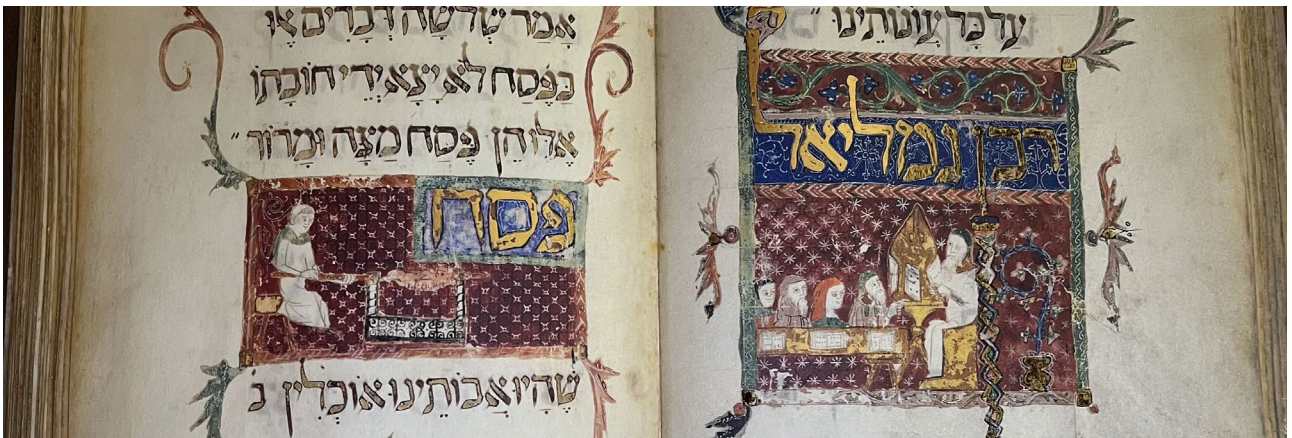 על כל עונותינו
רבן גמליאל
אמר שלשה דברים או
בפסח לא יצא ידי חובתו
אלו הן פסח מצה ומרור
פסח
שהיו אבותינו אוכלין ב